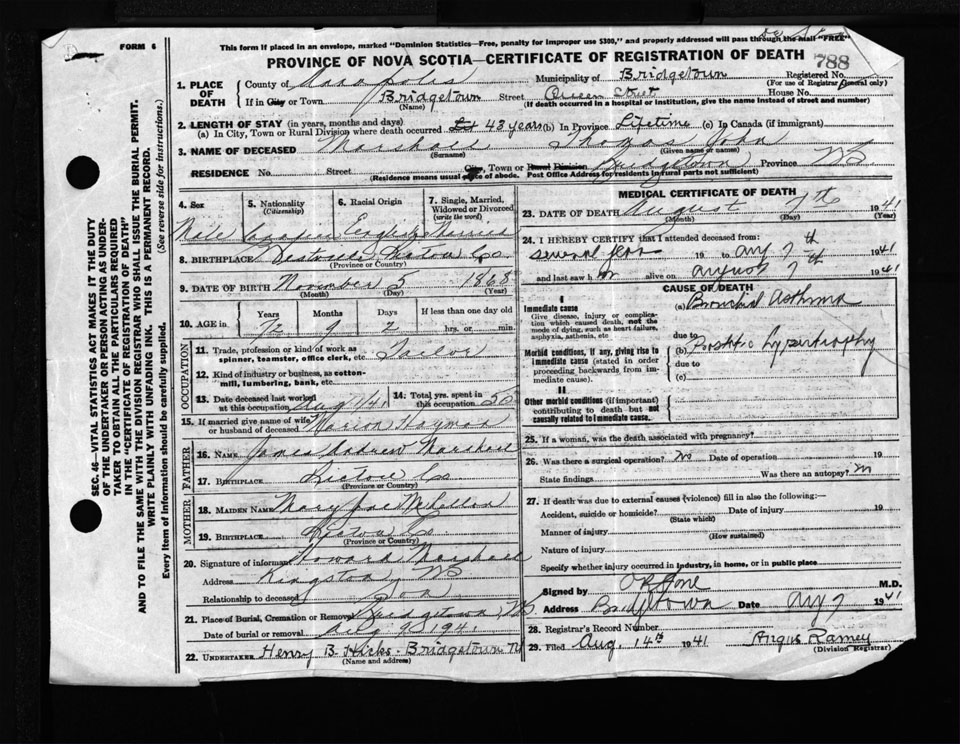 FORM 6
This form if placed in an envelope, marked "Dominion Statistics—Free, penalty for improper use $300," and properly addressed will pass through the mail "FREE"
PROVINCE OF NOVA SCOTIA—CERTIFICATE OF REGISTRATION OF DEATH
788
1. PLACE OF DEATH
County of Annapolis Municipality of Bridgetown Registered No.
(For use of Registrar General only)
If in City or Town Bridgetown Street Queen Street House No.
(Name) (If death occurred in a hospital or institution, give the name instead of street and number)
2. LENGTH OF STAY (in years, months and days)
(a) In City, Town or Rural Division where death occurred 43 years (b) In Province Lifetime (c) In Canada (if immigrant)
3. NAME OF DECEASED Marshall Thomas John
(Surname) (Given name or names)
RESIDENCE No. Street City, Town or Rural Division Bridgetown Province NS
(Residence means usual place of abode. Post Office Address for residents in rural parts not sufficient)
4. Sex
5. Nationality (Citizenship)
6. Racial Origin
7. Single, Married, Widowed or Divorced (write the word)
Male Canadian English Married
8. BIRTHPLACE Westville Pictou Co
(Province or Country)
9. DATE OF BIRTH November 5 1868
(Month) (Day) (Year)
10. AGE in
Years Months Days If less than one day old
72 9 2 hrs. or min.
OCCUPATION
11. Trade, profession or kind of work as spinner, teamster, office clerk, etc. Tailor
12. Kind of industry or business, as cotton-mill, lumbering, bank, etc.
13. Date deceased last worked at this occupation Aug 1/41
14. Total yrs. spent in this occupation 50
15. If married give name of wife or husband of deceased Marion Hayman
FATHER
16. NAME James Andrew Marshall
17. BIRTHPLACE Pictou Co
(Province or Country)
MOTHER
18. MAIDEN NAME Mary Jane
19. BIRTHPLACE Pictou Co
(Province or Country)
20. Signature of informant Howard Marshall
Address Kingston NS
Relationship to deceased Son
21. Place of Burial, Cremation or Removal Bridgetown NS
Date of burial or removal Aug 9 1941
22. UNDERTAKER Henry B. Hicks - Bridgetown
(Name and address)
MEDICAL CERTIFICATE OF DEATH
23. DATE OF DEATH August 7th 1941
(Month) (Day) (Year)
24. I HEREBY CERTIFY that I attended deceased from:
several years 19 to Aug 7th 1941
and last saw h im alive on August 7th 1941
CAUSE OF DEATH
I
Immediate cause
Give disease, injury or complication which caused death, not the mode of dying, such as heart failure, asphyxia, asthenia, etc
(a) Bronchial Asthma
due to
Morbid conditions, if any, giving rise to immediate cause (stated in order proceeding backwards from immediate cause).
(b) Prostatic hypertrophy
due to
(c)
II
Other morbid conditions (if important) contributing to death but not causally related to immediate cause.
25. If a woman, was the death associated with pregnancy?
26. Was there a surgical operation? No Date of operation 19
State findings Was there an autopsy? No
27. If death was due to external causes (violence) fill in also the following:—
Accident, suicide or homicide? Date of injury 19
(State which)
Manner of injury
(How sustained)
Nature of injury
Specify whether injury occurred in industry, in home, or in public place
Signed by M.D.
Address Bridgetown Date Aug 7 1941
28. Registrar's Record Number
29. Filed Aug. 14th 1941 Angus Ramey
(Division Registrar)
SEC. 46—VITAL STATISTICS ACT MAKES IT THE DUTY
OF THE UNDERTAKER OR PERSON ACTING AS UNDER-
TAKER TO OBTAIN ALL THE PARTICULARS REQUIRED
IN THE "CERTIFICATE OF REGISTRATION OF DEATH"
AND TO FILE THE SAME WITH THE DIVISION REGISTRAR WHO SHALL ISSUE THE BURIAL PERMIT.
WRITE PLAINLY WITH UNFADING INK. THIS IS A PERMANENT RECORD.
Every item of information should be carefully supplied. (See reverse side for instructions.)